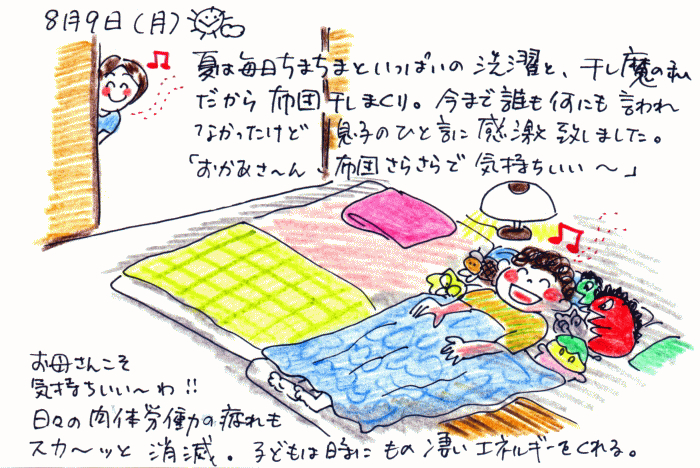 8月9日(月)
夏は毎日ちまちまといっぱいの洗濯と、干し魔の私
だから布団干しまくり。今まで誰も何にも言われ
なかったけど 息子のひと言に感激致しました。
「おかあさ〜ん、布団さらさらで気持ちいい〜」
お母さんこそ
気持ちいい〜わ!!
日々の肉体労働力の疲れも
スカ〜ッと消滅。子どもは時にもの凄いエネルギーをくれる。